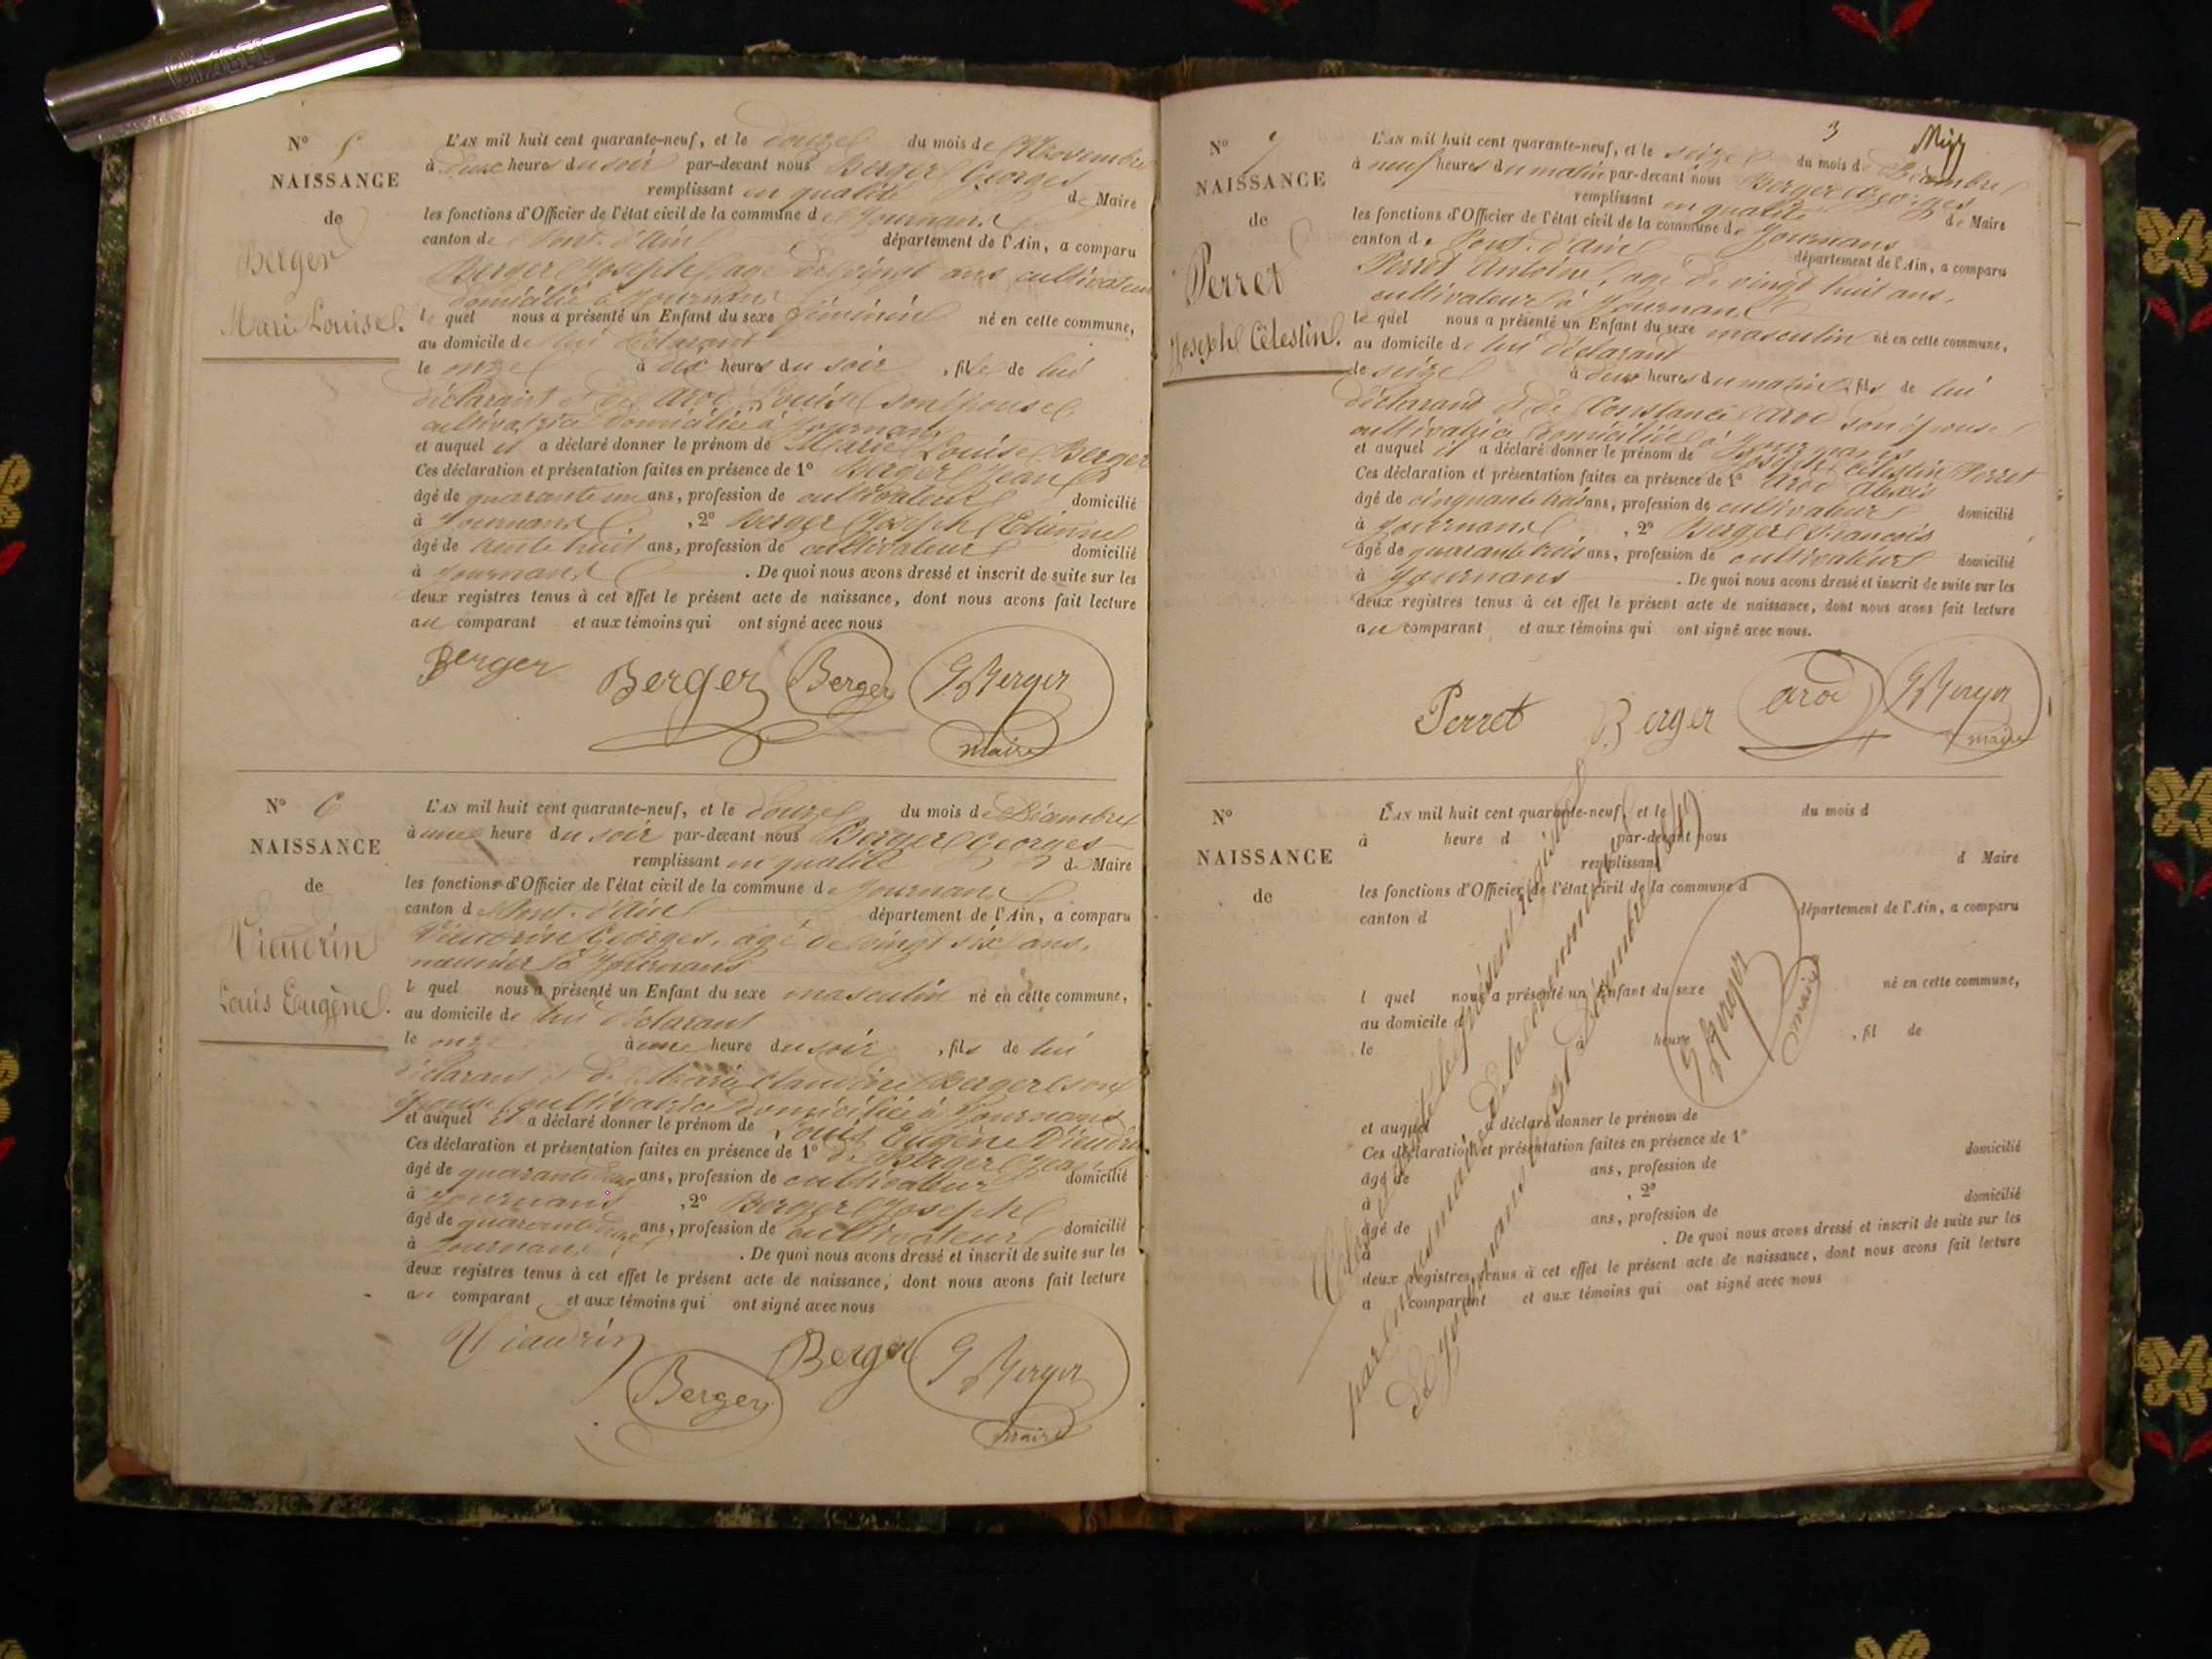 N° 5
NAISSANCE
de
Berger
Marie Louise.
L'AN mil huit cent quarante-neuf, et le douze du mois de Novembre
à deux heures du soir par-devant nous Berger Georges
remplissant en qualité de Maire
les fonctions d'Officier de l'état civil de la commune de Journans
canton de Pont-d'Ain département de l'Ain, a comparu
Berger Joseph, age de vingt ans cultivateur
domicilié à Journans
le quel nous a présenté un Enfant du sexe féminin né en cette commune,
au domicile de lui déclarant
le onze à dix heures du soir, fille de lui
déclarant et de Arod Louise son épouse
cultivatrice domiciliée à Journans
et auquel il a déclaré donner le prénom de Marie Louise Berger
Ces déclaration et présentation faites en présence de 1° Berger Jean
âgé de quarante un ans, profession de cultivateur domicilié
à Journans, 2° Berger Joseph Etienne
âgé de trente huit ans, profession de cultivateur domicilié
à Journans. De quoi nous avons dressé et inscrit de suite sur les
deux registres tenus à cet effet le présent acte de naissance, dont nous avons fait lecture
au comparant et aux témoins qui ont signé avec nous
Berger Berger Berger G Berger
maire
N° 6
NAISSANCE
de
Vieudrin
Louis Eugène.
L'AN mil huit cent quarante-neuf, et le douze du mois de Décembre
à une heure du soir par-devant nous Berger Georges
remplissant en qualité de Maire
les fonctions d'Officier de l'état civil de la commune de Journans
canton d Pont-d'Ain département de l'Ain, a comparu
Vieudrin Georges, agé de vingt six ans,
meunier à Journans
le quel nous a présenté un Enfant du sexe masculin né en cette commune,
au domicile de lui déclarant
le onze à une heure du soir, fils de lui
déclarant et de Marie Claudine Berger son
épouse cultivatrice domiciliée à Journans
et auquel il a déclaré donner le prénom de Louis Eugène Vieudrin
Ces déclaration et présentation faites en présence de 1° de Berger Jean
âgé de quarante ans, profession de cultivateur domicilié
à Journans, 2° Berger Joseph
âgé de quarante ans, profession de cultivateur domicilié
à Journans. De quoi nous avons dressé et inscrit de suite sur les
deux registres tenus à cet effet le présent acte de naissance, dont nous avons fait lecture
au comparant et aux témoins qui ont signé avec nous
Viaudrin Berger Berger G Berger
maire
3
N° 7
NAISSANCE
de
Perret
Joseph Célestin.
L'AN mil huit cent quarante-neuf, et le seize du mois de Décembre
à neuf heures du matin par-devant nous Berger Georges
remplissant en qualité de Maire
les fonctions d'Officier de l'état civil de la commune de Journans
canton de Pont-d'Ain département de l'Ain, a comparu
Perret Antoine, age de vingt huit ans,
cultivateur à Journans
le quel nous a présenté un Enfant du sexe masculin né en cette commune,
au domicile de lui déclarant
le seize à deux heures du matin, fils de lui
déclarant et de Constance Arod son épouse
cultivatrice domiciliée à Journans
et auquel il a déclaré donner le prénom de Joseph Célestin Perret
Ces déclaration et présentation faites en présence de 1° Arod Alexis
âgé de cinquante trois ans, profession de cultivateur domicilié
à Journans, 2° Berger Francois
âgé de quarante trois ans, profession de cultivateur domicilié
à Journans. De quoi nous avons dressé et inscrit de suite sur les
deux registres tenus à cet effet le présent acte de naissance, dont nous avons fait lecture
au comparant et aux témoins qui ont signé avec nous.
Perret Berger arod G Berger
maire
N°
NAISSANCE
de
L'AN mil huit cent quarante-neuf, et le du mois d
à heure d par-devant nous
remplissant d Maire
les fonctions d'Officier de l'état civil de la commune d
canton d département de l'Ain, a comparu
l quel nous a présenté un Enfant du sexe né en cette commune,
au domicile d
le à heure, fil de
et auquel a déclaré donner le prénom de
Ces déclaration et présentation faites en présence de 1°
âgé de ans, profession de domicilié
à, 2°
âgé de ans, profession de domicilié
à. De quoi nous avons dressé et inscrit de suite sur les
deux registres tenus à cet effet le présent acte de naissance, dont nous avons fait lecture
a comparant et aux témoins qui ont signé avec nous
le présent registre
par nous maire de la commune
de Journans le 31 Décembre 1849
G Berger
maire